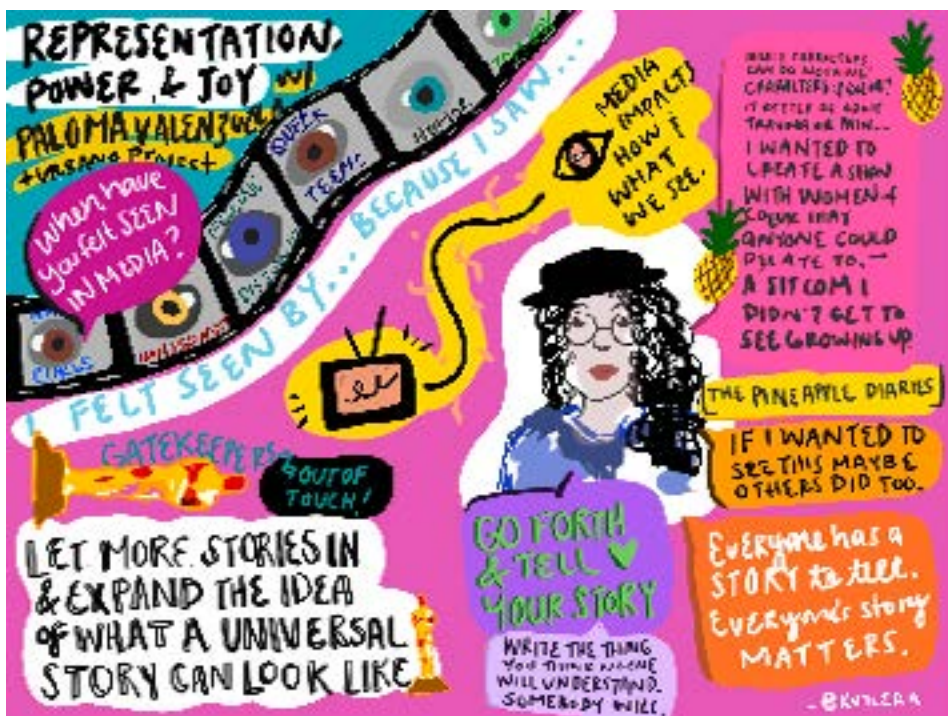 REPRESENTATION,
POWER & JOY w/
PALOMA VALENZUELA
+ URBANO PROJECT
When have
you felt SEEN
IN MEDIA?
I FELT SEEN BY... BECAUSE I SAW...
QUEER
TEENS
MEDIA
IMPACTS
HOW &
WHAT
WE SEE.
I WANTED TO
CREATE A SHOW
WITH WOMEN of
COLOR THAT
ANYONE COULD
RELATE TO. —
A SITCOM I
DIDN'T GET TO
SEE GROWING UP
[THE PINEAPPLE DIARIES]
IF I WANTED TO
SEE THIS MAYBE
OTHERS DID TOO.
GATEKEEPERS
OUT OF
TOUCH!
LET MORE STORIES IN
& EXPAND THE IDEA
OF WHAT A UNIVERSAL
STORY CAN LOOK LIKE
GO FORTH
& TELL
YOUR STORY
WRITE THE THING
YOU THINK NO ONE
WILL UNDERSTAND.
SOMEBODY WILL.
EVERYONE has a
STORY to tell.
EVERYONE'S story
MATTERS.